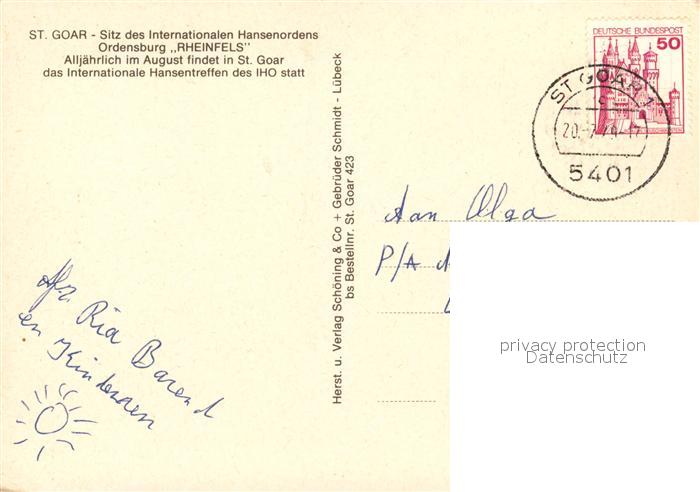 ST. GOAR - Sitz des Internationalen Hansenordens
Ordensburg ,,RHEINFELS''
Alljährlich im August findet in St. Goar
das Internationale Hansentreffen des IHO statt
Herst. u. Verlag Schöning & Co + Gebrüder Schmidt - Lübeck
bs Bestellnr. St. Goar 423
DEUTSCHE BUNDESPOST
50
ST GOAR 1
c
5401
Aan Olga
P/A
Afz. Ria Barend
en Kinderen
privacy protection
Datenschutz